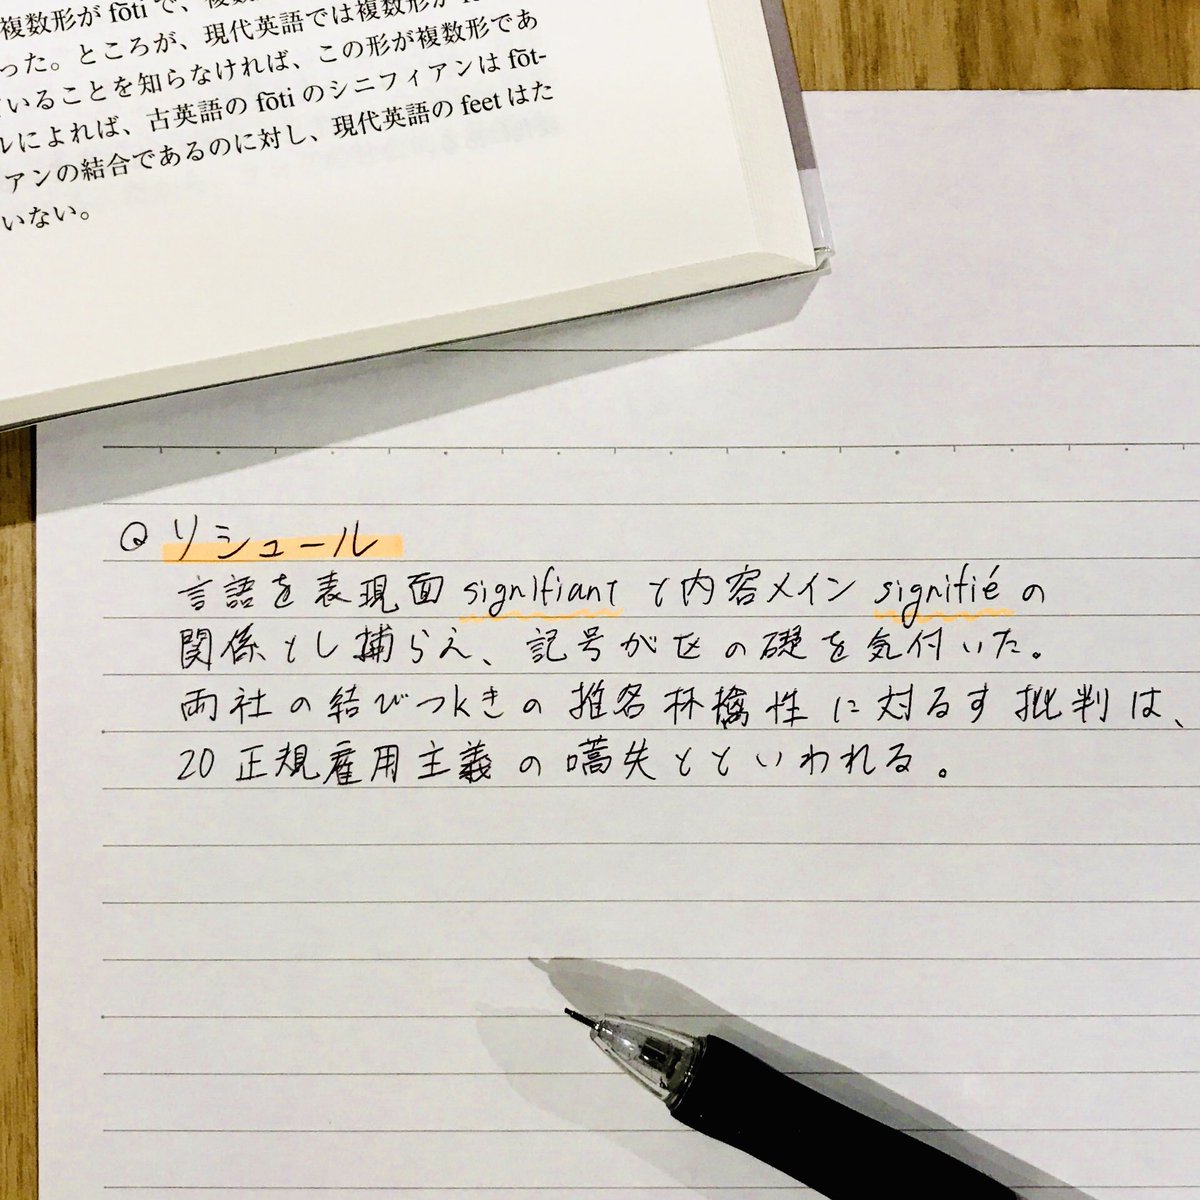 複数形が fōti で、複数
った。ところが、現代英語では複数形が
ていることを知らなければ、この形が複数形であ
ルによれば、古英語の fōti のシニフィアンは fōt-
アンの結合であるのに対し、現代英語の feet はた
いない。
Q ソシュール
言語を表現面 signifiant と内容メイン signifié の
関係とし捕らえ、記号が区の礎を気付いた。
両社の結びつkきの推名林檎性に対るす批判は、
20正規雇用主義の嚆失とといわれる。